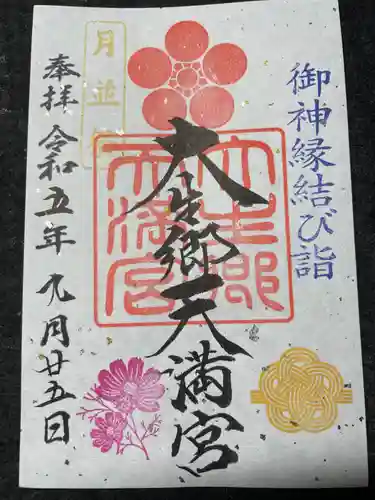 御神縁結び詣
大生郷天満宮
大生郷
天満宮
月並
奉拝 令和五年九月廿五日